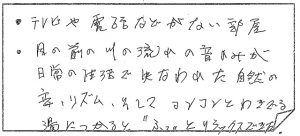 ・テレビや電話などがない部屋
・目の前の川の流れの音のみが
日常の生活で失なわれた自然の
音、リズム、そして コンコンとわきでる
湯につかると、“ふっ”とリラックスできる